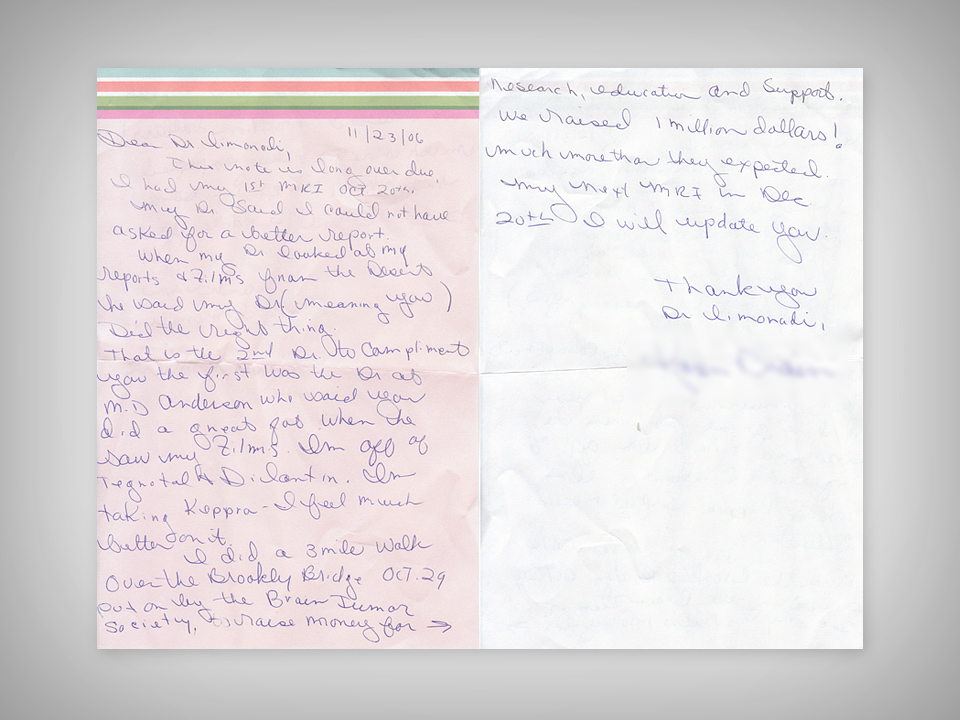 11/23/06
Dear Dr Limonadi,
This note is long over due.
I had my 1st MRI Oct 20th.
My Dr Said I could not have
asked for a better report.
When my Dr looked at my
reports & Films from the Desert
he said my Dr (meaning you)
Did the right thing.
That is the 2nd Dr. to Compliment
you the first was the Dr at
M.D Anderson who said you
did a great job when the
saw my Films. Im off of
Tegnotal & Dilantin. Im
taking Keppra - I feel much
better on it.
I did a 3 mile Walk
Over the Brookly Bridge Oct. 29
put on by the Brain Tumor
Society, to raise money for →
Research, education and Support.
We raised 1 million dollars!
much more than they expected.
My next MRI in Dec
20th I will update you.
Thank you
Dr Limonadi,